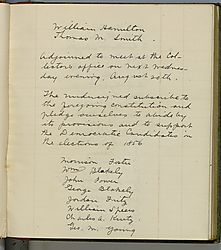 William Hamilton
Thomas M. Smith
Adjourned to meet at the Col-
lectors office on next Wednes-
day evening, August 20th.
The undersigned subscribe to
the foregoing constitution and
pledge ourselves to abide by
its provisions and to support
the Democratic Candidates in
the elections of 1856
Morrison
Wm Blakely
John Power
George Blakely
Jordan Fritz
William Speers
Charles A. Kurtz
Geo. M. Young